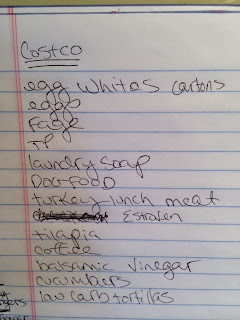 Costco
egg whites cartons
eggs
Fage
TP
laundry soap
DOG FOOD
turkey lunch meat
Estroven
tilapia
coffee
balsamic vinegar
cucumbers
low carb tortillas